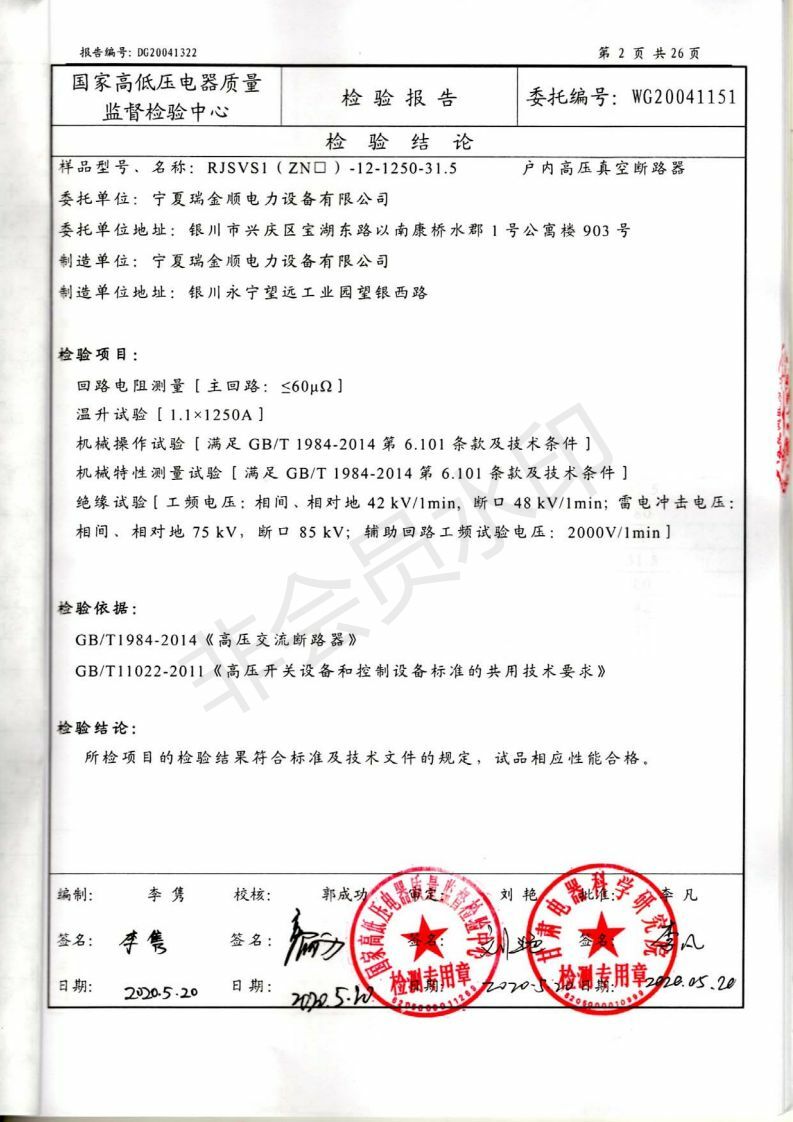 报告编号: DG20041322
第 2 页 共26页
国家高低压电器质量
监督检验中心
检 验 报 告
委托编号: WG20041151
检 验 结 论
样品型号、名称: RJSVS1（ZN□）-12-1250-31.5 户内高压真空断路器
委托单位: 宁夏瑞金顺电力设备有限公司
委托单位地址: 银川市兴庆区宝湖东路以南康桥水郡 1 号公寓楼 903 号
制造单位: 宁夏瑞金顺电力设备有限公司
制造单位地址: 银川永宁望远工业园望银西路
检验项目:
回路电阻测量 [ 主回路: ≤60μΩ ]
温升试验 [ 1.1×1250A ]
机械操作试验 [ 满足 GB/T 1984-2014 第 6.101 条款及技术条件 ]
机械特性测量试验 [ 满足 GB/T 1984-2014 第 6.101 条款及技术条件 ]
绝缘试验 [ 工频电压: 相间、相对地 42 kV/1min, 断口 48 kV/1min; 雷电冲击电压:
相间、相对地 75 kV, 断口 85 kV; 辅助回路工频试验电压: 2000V/1min ]
检验依据:
GB/T1984-2014《高压交流断路器》
GB/T11022-2011《高压开关设备和控制设备标准的共用技术要求》
检验结论:
所检项目的检验结果符合标准及技术文件的规定, 试品相应性能合格。
编制: 李 隽 校核: 郭成功 审定: 刘 艳 批准: 李 凡
签名: 李隽 签名: 签名: 刘艳 签名: 李凡
日期: 2020.5.20 日期: 2020.5.20 日期: 2020.5.20 日期: 2020.05.20
国家高低压电器质量监督检验中心
检测专用章
6206000011299
甘肃电器科学研究院
检测专用章
6206000010999
非会员水印